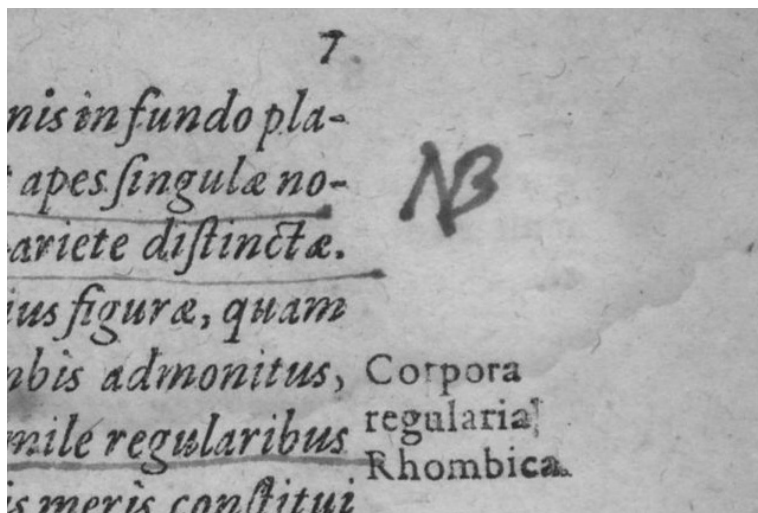 7.
nis in fundo pla-
apes ſingulæ no-
ariete diſtinctæ.
ius figuræ, quam
nbis admonitus,
mile regularibus
is meris conſtitui
NB
Corpora
regularia
Rhombica.